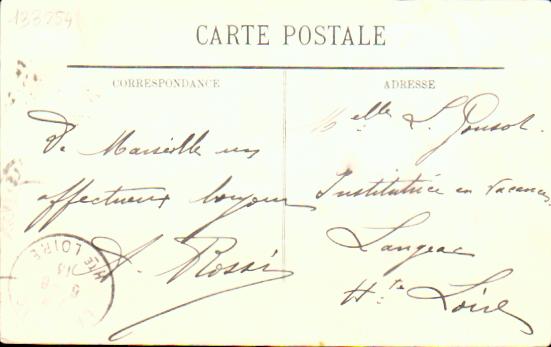 133254
CARTE POSTALE
CORRESPONDANCE
De Marseille un
affectueux bonjour
A. Rossi
ADRESSE
Melle L. Gousol.
Institutrice en vacances.
Langeac
Hte Loire
HTE LOIRE